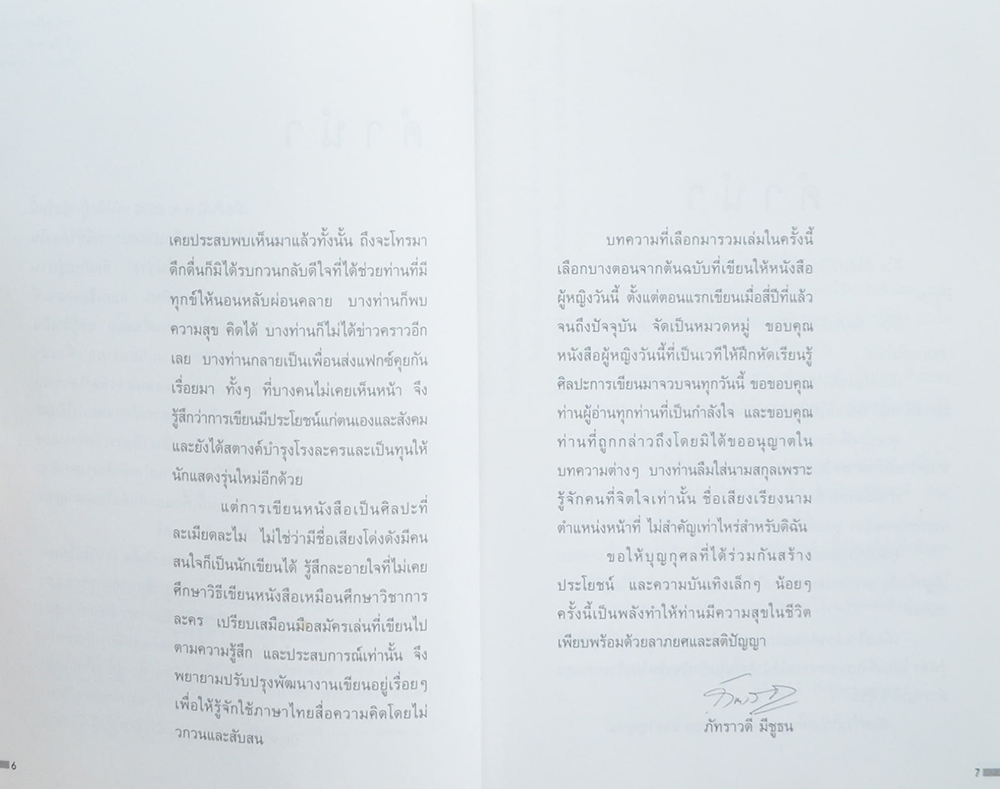 เคยประสบพบเห็นมาแล้วทั้งนั้น ถึงจะโทรมา
ดึกดื่นก็มิได้รบกวนกลับดีใจที่ได้ช่วยท่านที่มี
ทุกข์ให้นอนหลับผ่อนคลาย บางท่านก็พบ
ความสุข คิดได้ บางท่านก็ไม่ได้ข่าวคราวอีก
เลย บางท่านกลายเป็นเพื่อนส่งแฟกซ์คุยกัน
เรื่อยมา ทั้งๆ ที่บางคนไม่เคยเห็นหน้า จึง
รู้สึกว่าการเขียนมีประโยชน์แก่ตนเองและสังคม
และยังได้สตางค์บำรุงโรงละครและเป็นทุนให้
นักแสดงรุ่นใหม่อีกด้วย
แต่การเขียนหนังสือเป็นศิลปะที่
ละเมียดละไม ไม่ใช่ว่ามีชื่อเสียงโด่งดังมีคน
สนใจก็เป็นนักเขียนได้ รู้สึกละอายใจที่ไม่เคย
ศึกษาวิธีเขียนหนังสือเหมือนศึกษาวิชาการ
ละคร เปรียบเสมือนมือสมัครเล่นที่เขียนไป
ตามความรู้สึก และประสบการณ์เท่านั้น จึง
พยายามปรับปรุงพัฒนางานเขียนอยู่เรื่อยๆ
เพื่อให้รู้จักใช้ภาษาไทยสื่อความคิดโดยไม่
วกวนและสับสน
6
บทความที่เลือกมารวมเล่มในครั้งนี้
เลือกบางตอนจากต้นฉบับที่เขียนให้หนังสือ
ผู้หญิงวันนี้ ตั้งแต่ตอนแรกเขียนเมื่อสี่ปีที่แล้ว
จนถึงปัจจุบัน จัดเป็นหมวดหมู่ ขอบคุณ
หนังสือผู้หญิงวันนี้ที่เป็นเวทีให้ฝึกหัดเรียนรู้
ศิลปะการเขียนมาจวบจนทุกวันนี้ ขอขอบคุณ
ท่านผู้อ่านทุกท่านที่เป็นกำลังใจ และขอบคุณ
ท่านที่ถูกกล่าวถึงโดยมิได้ขออนุญาตใน
บทความต่างๆ บางท่านลืมใส่นามสกุลเพราะ
รู้จักคนที่จิตใจเท่านั้น ชื่อเสียงเรียงนาม
ตำแหน่งหน้าที่ ไม่สำคัญเท่าไหร่สำหรับดิฉัน
ขอให้บุญกุศลที่ได้ร่วมกันสร้าง
ประโยชน์ และความบันเทิงเล็กๆ น้อยๆ
ครั้งนี้เป็นพลังทำให้ท่านมีความสุขในชีวิต
เพียบพร้อมด้วยลาภยศและสติปัญญา
ภัทราวดี มีชูธน
7